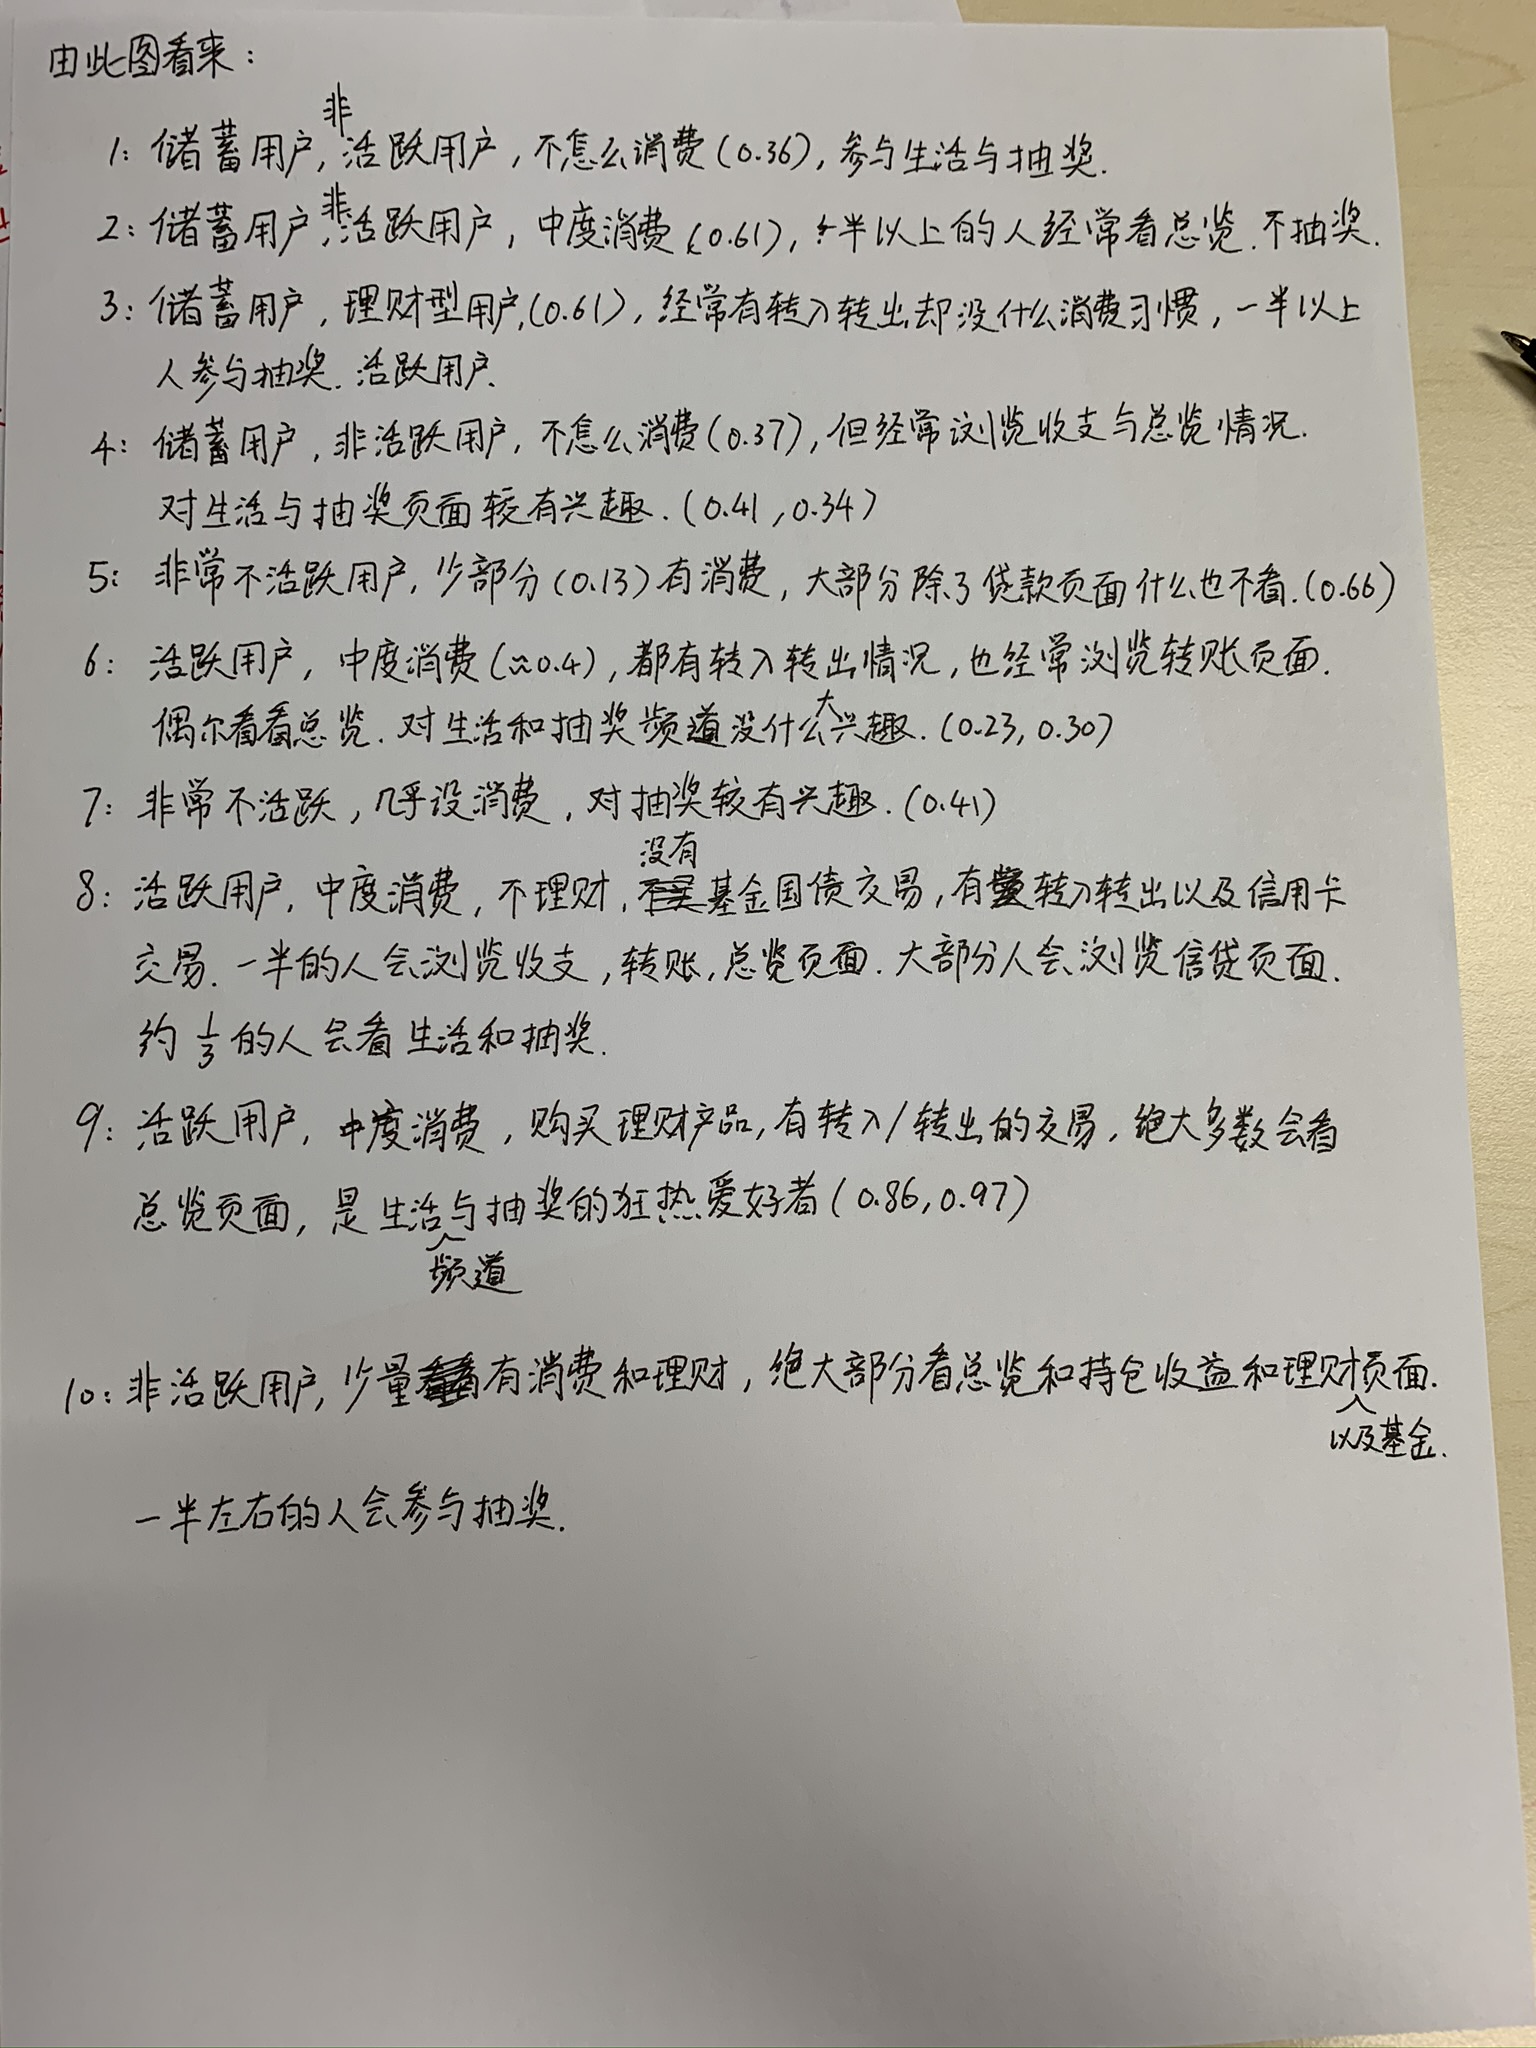 由此图看来：
1：储蓄用户，非活跃用户，不怎么消费(0.36)，参与生活与抽奖.
2：储蓄用户，非活跃用户，中度消费(0.61)，半以上的人经常看总览.不抽奖.
3：储蓄用户，理财型用户,(0.61)，经常有转入转出却没什么消费习惯，一半以上
人参与抽奖.活跃用户.
4：储蓄用户，非活跃用户，不怎么消费(0.37)，但经常浏览收支与总览情况.
对生活与抽奖页面较有兴趣.(0.41,0.34)
5：非常不活跃用户，少部分(0.13)有消费，大部分除了贷款页面什么也不看.(0.66)
6：活跃用户，中度消费(≈0.4)，都有转入转出情况，也经常浏览转账页面.
偶尔看看总览.对生活和抽奖频道没什么大兴趣.(0.23,0.30)
7：非常不活跃，几乎没消费，对抽奖较有兴趣.(0.41)
8：活跃用户，中度消费，不理财，没有基金国债交易，有转入转出以及信用卡
交易.一半的人会浏览收支，转账，总览页面.大部分人会浏览信贷页面.
约1/3的人会看生活和抽奖.
9：活跃用户，中度消费，购买理财产品，有转入/转出的交易，绝大多数会看
总览页面，是生活频道与抽奖的狂热爱好者(0.86,0.97)
10：非活跃用户，少量有消费和理财，绝大部分看总览和持仓收益和理财以及基金页面.
一半左右的人会参与抽奖.